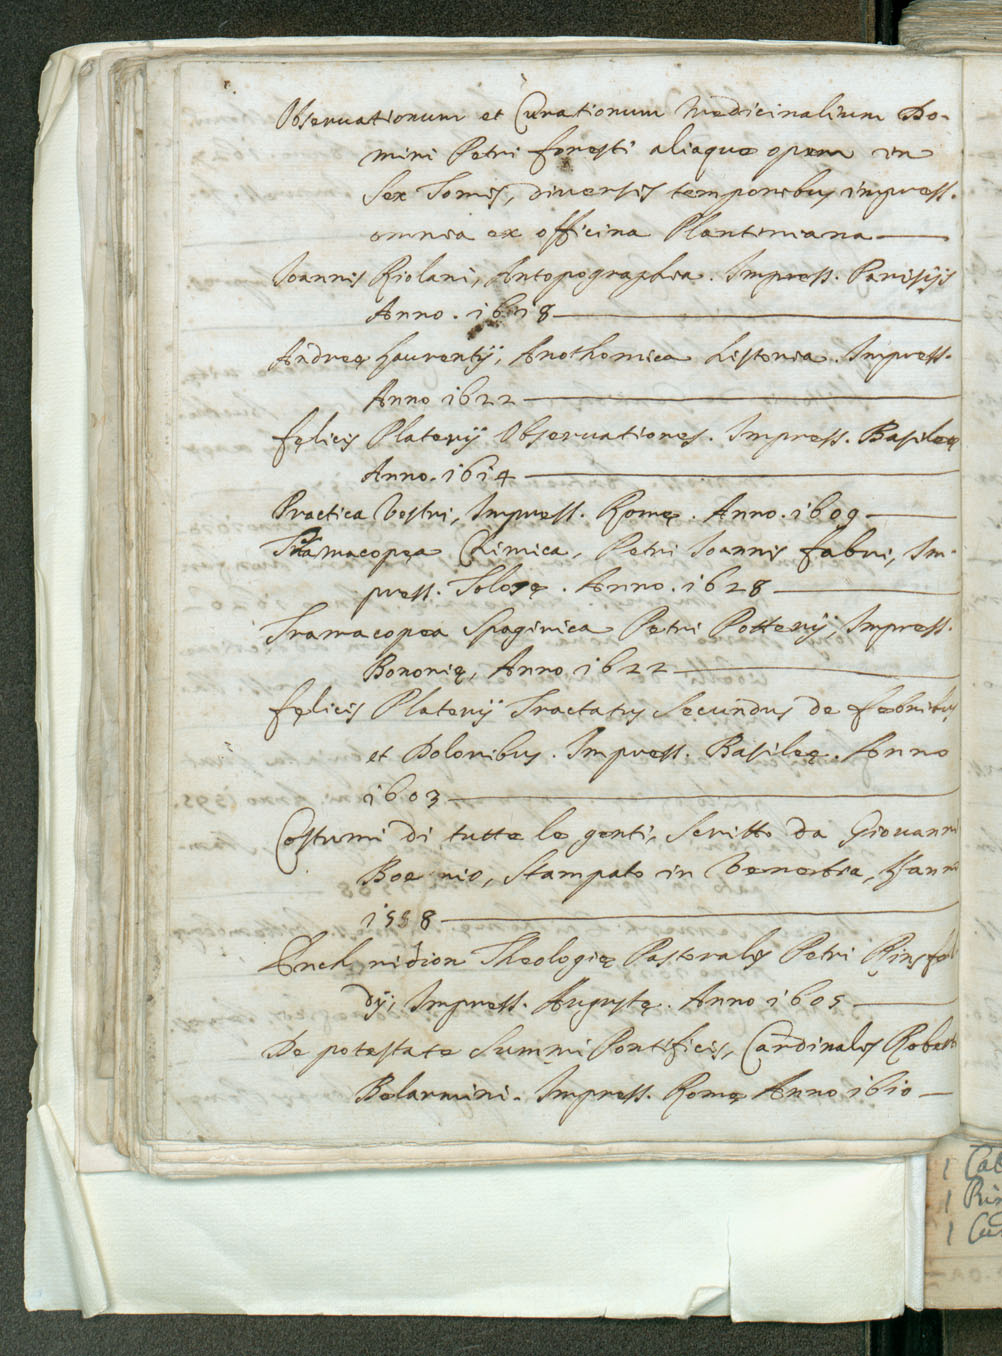 Obseruationum et Curationum Medicinalium Do-
mini Petri foresti aliaque opera in
sex Tomis, diuersis temporibus impress.
omnia ex officina Plantiniana
Ioannis Riolani, Antopographia. Impress. Parisijs
Anno. 1618
Andreę Laurentij, Anothomica historia. Impress.
Anno 1622
fęlicis Platerij Obseruationes. Impress. Basileę
Anno. 1614
Practica Vestri, Impress. Romę. Anno. 1609
Framacopęa Chimica, Petri Ioannis fabri, Im-
press. Tolosę. Anno. 1628
Framacopea Spagirica Petri Potterij, Impress.
Bononię, Anno 1622
fęlicis Platerij Tractatus Secundus de febribus
et Doloribus. Impress. Basileę. Anno
1603
Costumi di tutte le genti, Scritto da Giouanni
Boe nio, Stampato in Venetia, L'anno
1558
Enchiridion Theologię Pastoralis Petri Binsfel
dij, Impress. Augustę. Anno 1605
De potestate Summi Pontificis, Cardinalis Roberti
Belarmini. Impress. Romę Anno 1610